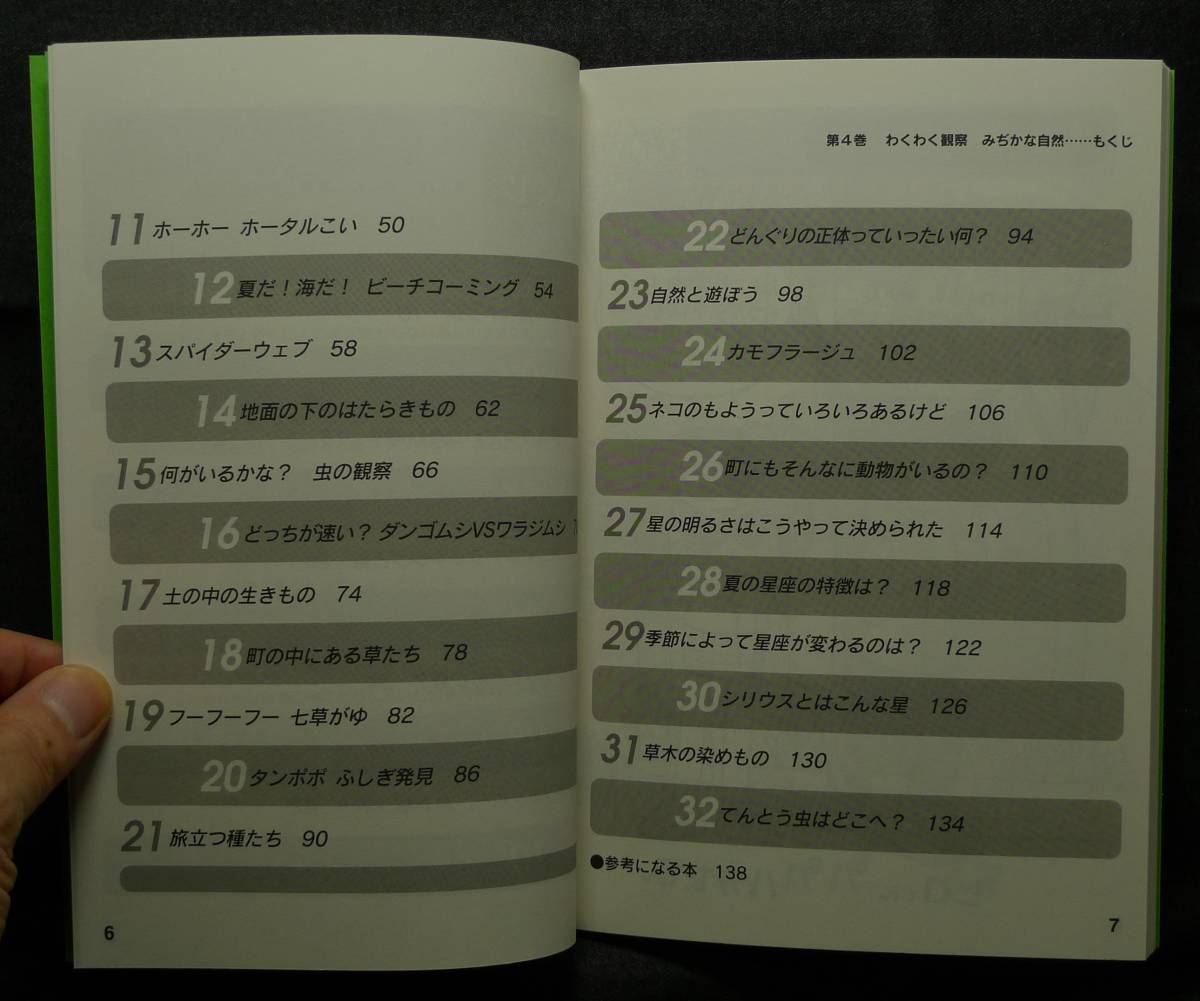 11 ホーホー ホータルこい 50
12 夏だ！海だ！ ビーチコーミング 54
13 スパイダーウェブ 58
14 地面の下のはたらきもの 62
15 何がいるかな？ 虫の観察 66
16 どっちが速い？ ダンゴムシVSワラジムシ
17 土の中の生きもの 74
18 町の中にある草たち 78
19 フーフーフー 七草がゆ 82
20 タンポポ ふしぎ発見 86
21 旅立つ種たち 90
6
第4巻 わくわく観察 みぢかな自然……もくじ
22 どんぐりの正体っていったい何？ 94
23 自然と遊ぼう 98
24 カモフラージュ 102
25 ネコのもようっていろいろあるけど 106
26 町にもそんなに動物がいるの？ 110
27 星の明るさはこうやって決められた 114
28 夏の星座の特徴は？ 118
29 季節によって星座が変わるのは？ 122
30 シリウスとはこんな星 126
31 草木の染めもの 130
32 てんとう虫はどこへ？ 134
●参考になる本 138
7